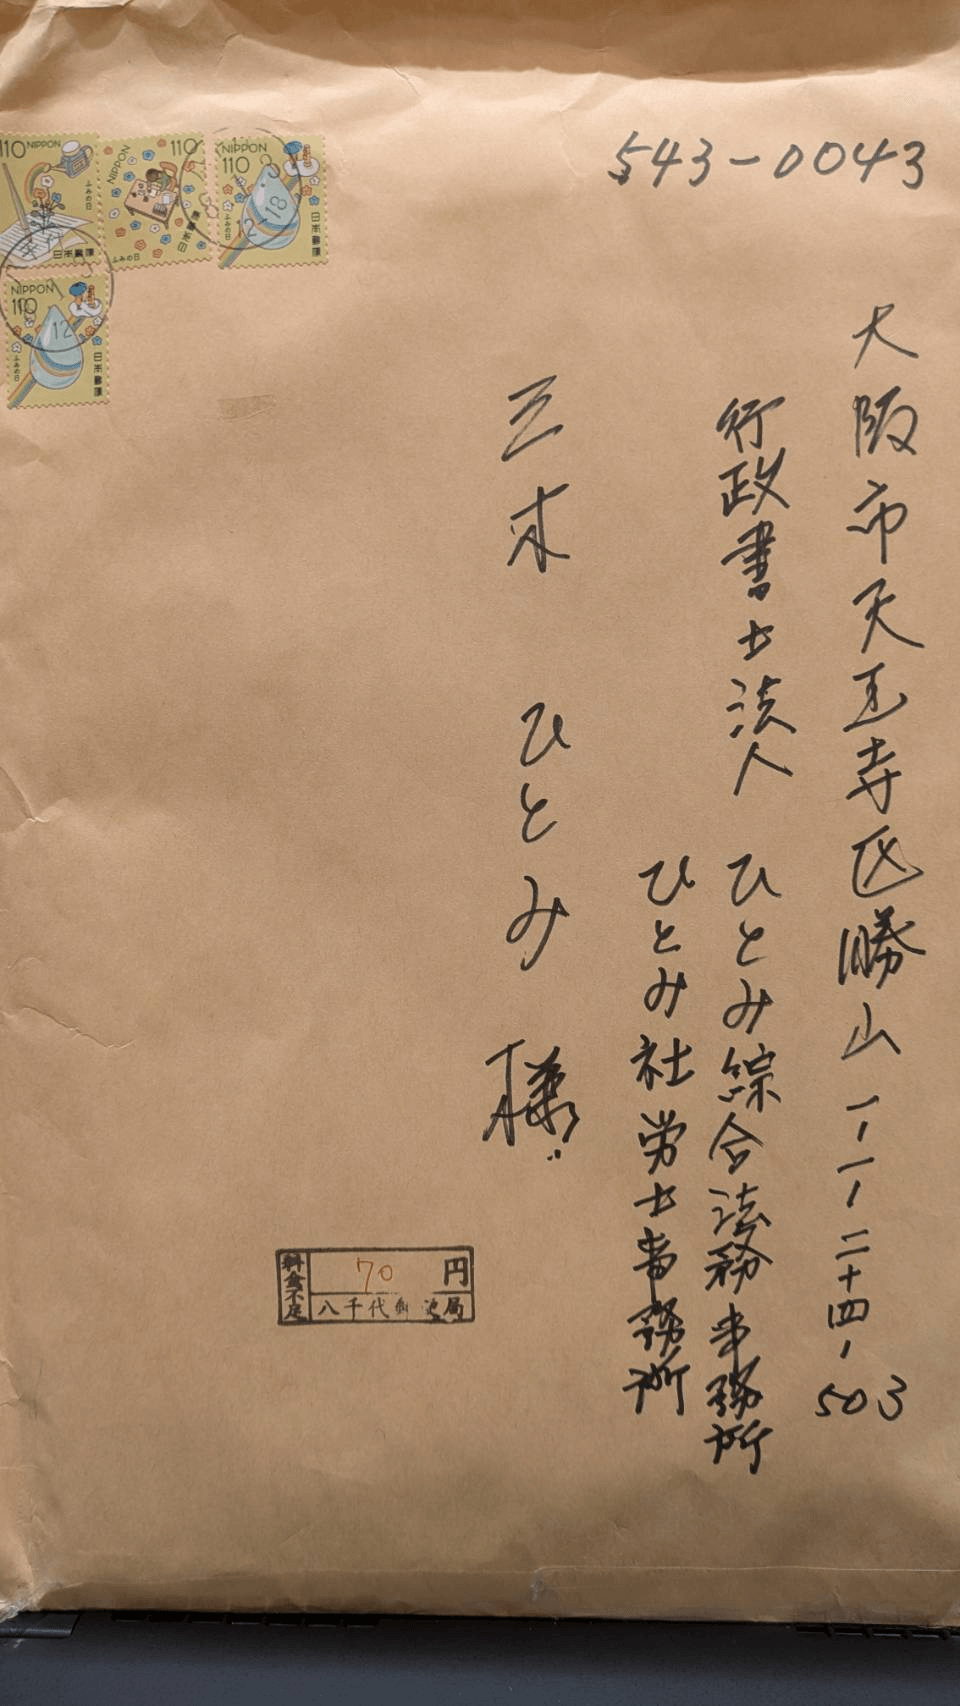 543-0043
大阪市天王寺区勝山一-一-二十四-503
行政書士法人 ひとみ綜合法務事務所
ひとみ社労士事務所
三木 ひとみ 様
110 NIPPON
ふみの日
日本郵便
NIPPON 110
ふみの日
日本郵便
NIPPON
110
ふみの日
日本郵便
NIPPON
110
ふみの日
日本郵便
12
18
12
料金不足
70 円
八千代郵便局